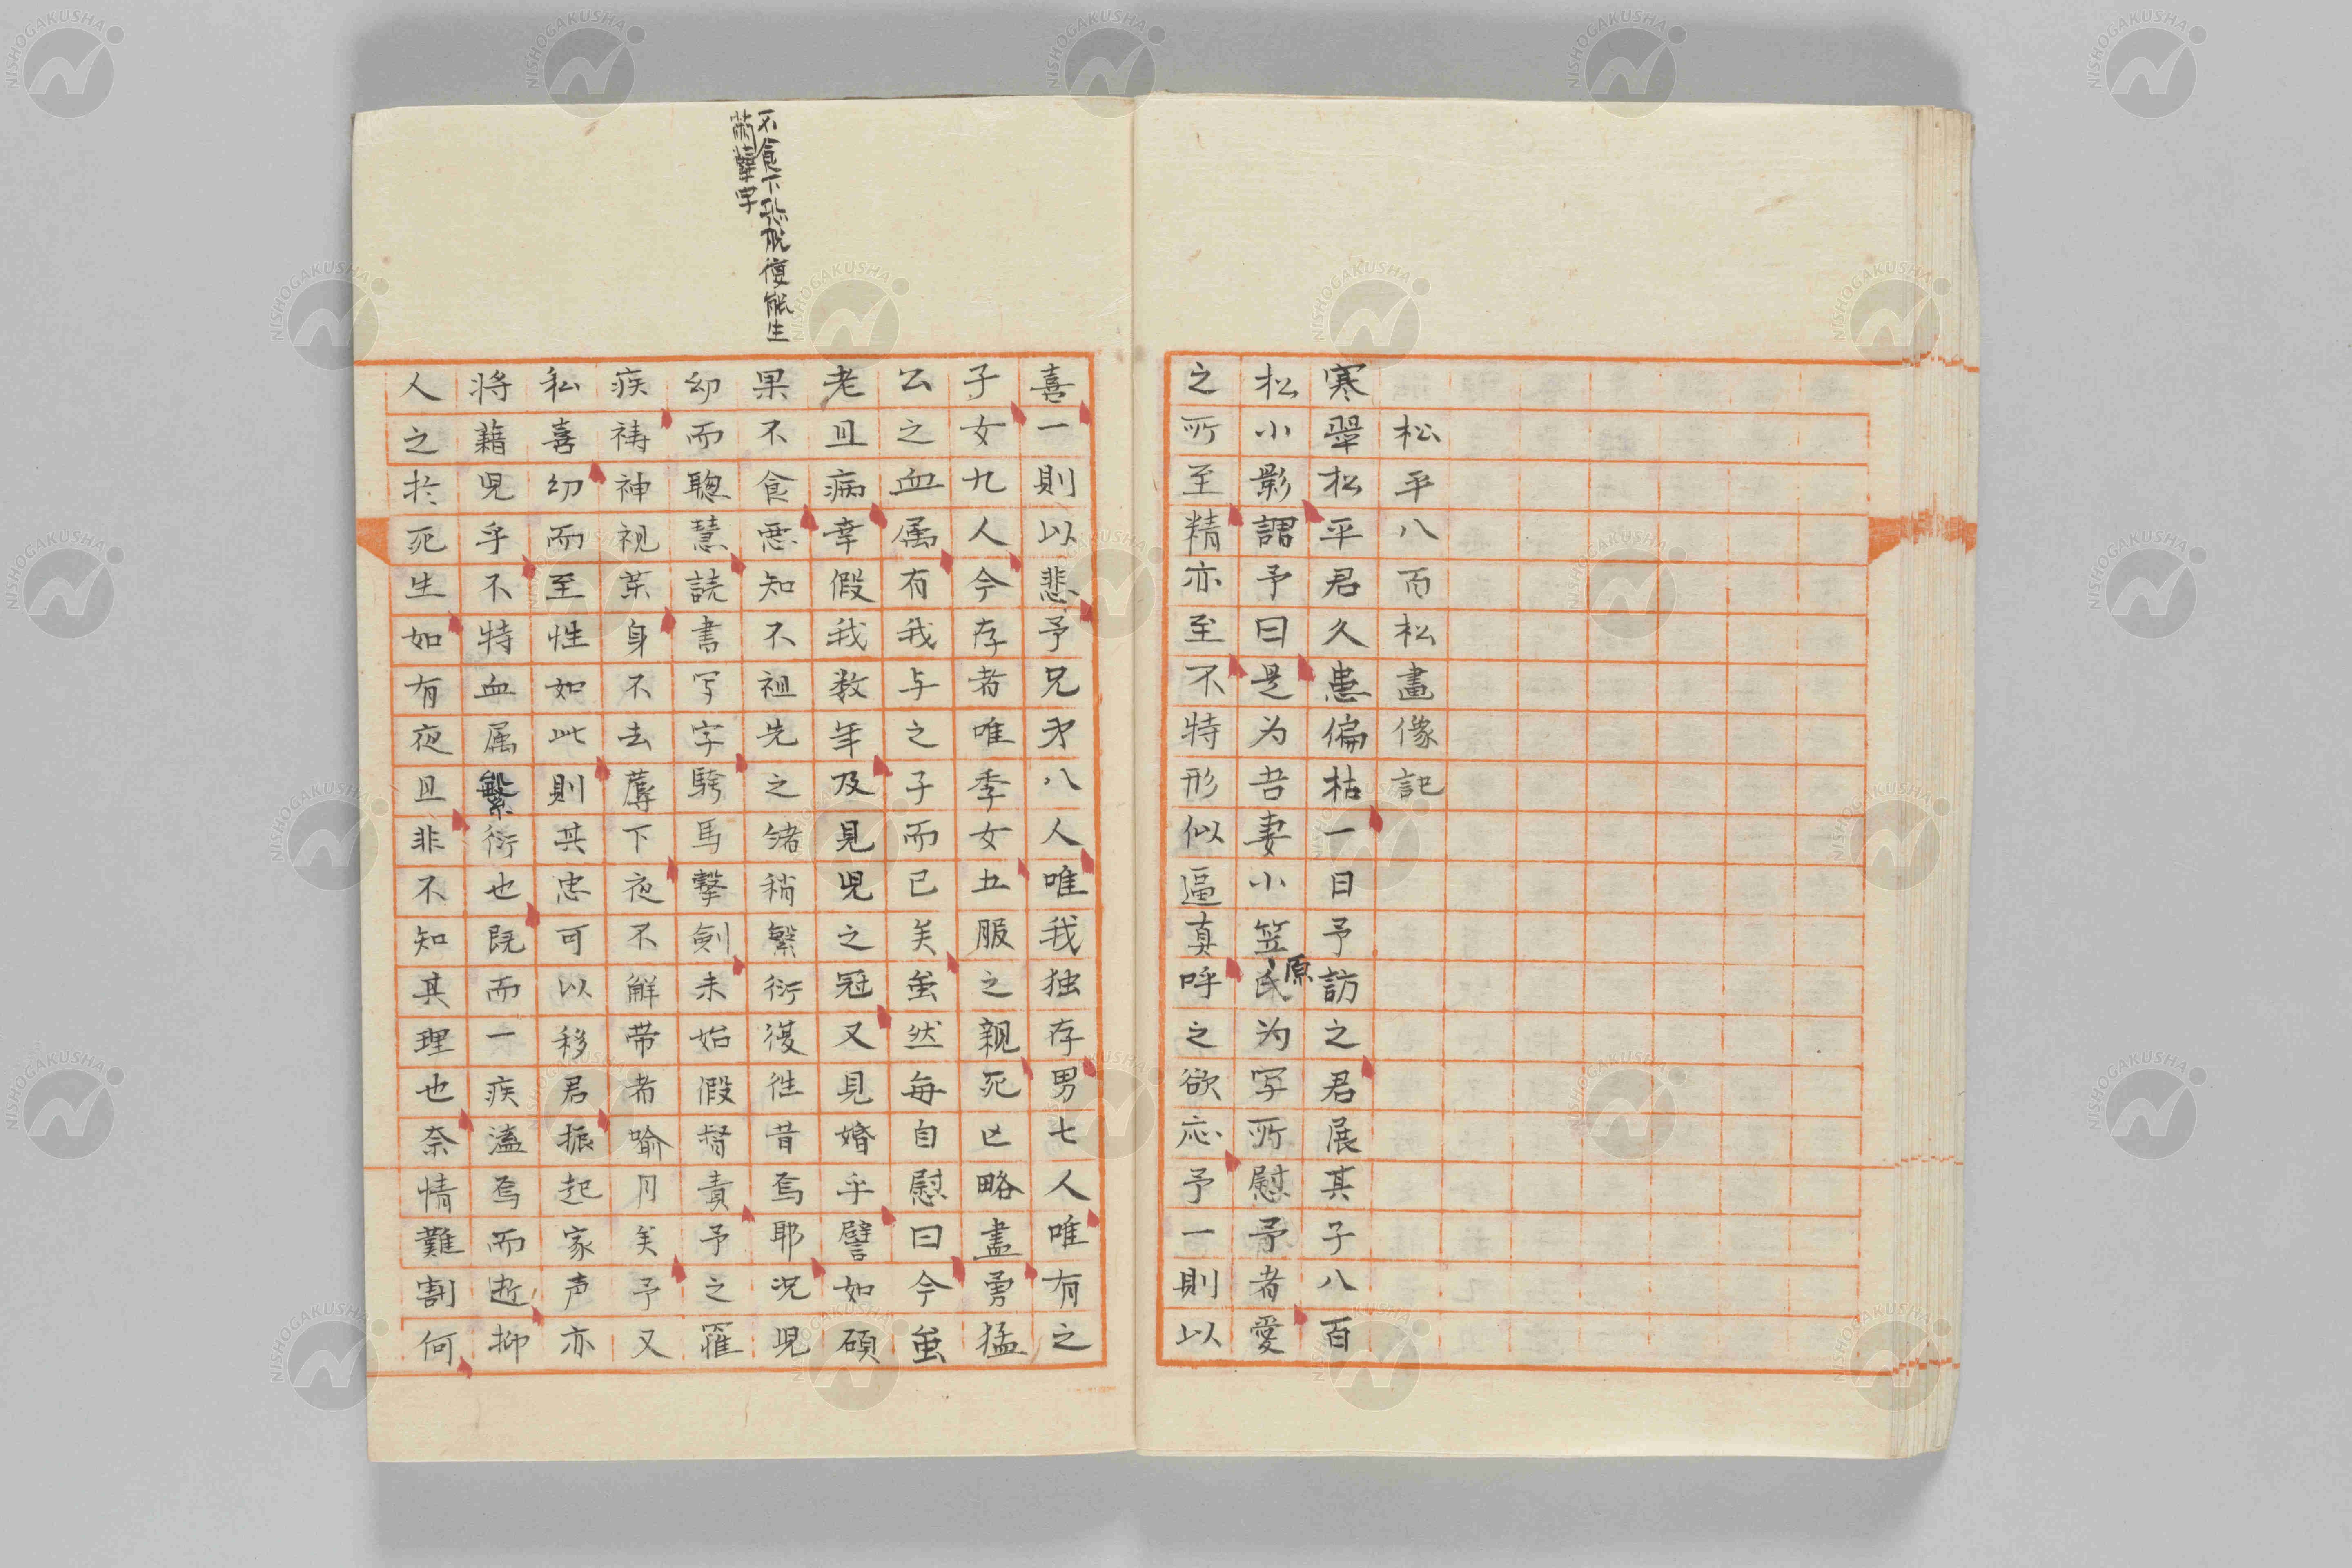 松平八百松畫像記
寒翠松平君久患偏枯一日予訪之君展其子八百
松小影謂予曰是为吾妻小笠原氏为写所慰予者愛
之所至精亦至不特形似逼真呼之欲应予一則以
喜一則以悲予兄弟八人唯我独存男七人唯有之
子女九人今存者唯季女五服之親死亡略盡勇猛
公之血属有我与之子而已矣虽然每自慰曰今虽
老且病幸假我数年及見児之冠又見婚乎譬如碩
果不食悪知不祖先之緒稍繁衍復往昔焉耶况児
幼而聰慧読書写字騎馬擊劍未始假督責予之罹
疾祷神視茶身不去蓐下夜不解帯者喻月矣予又
私喜幼而至性如此則其忠可以移君振起家声亦
将藉児乎不特血属繁衍也既而一疾溘焉而逝抑
人之於死生如有夜旦非不知其理也奈情難割何
不食下恐脱復能生
萌蘖字
NISHOGAKUSHA